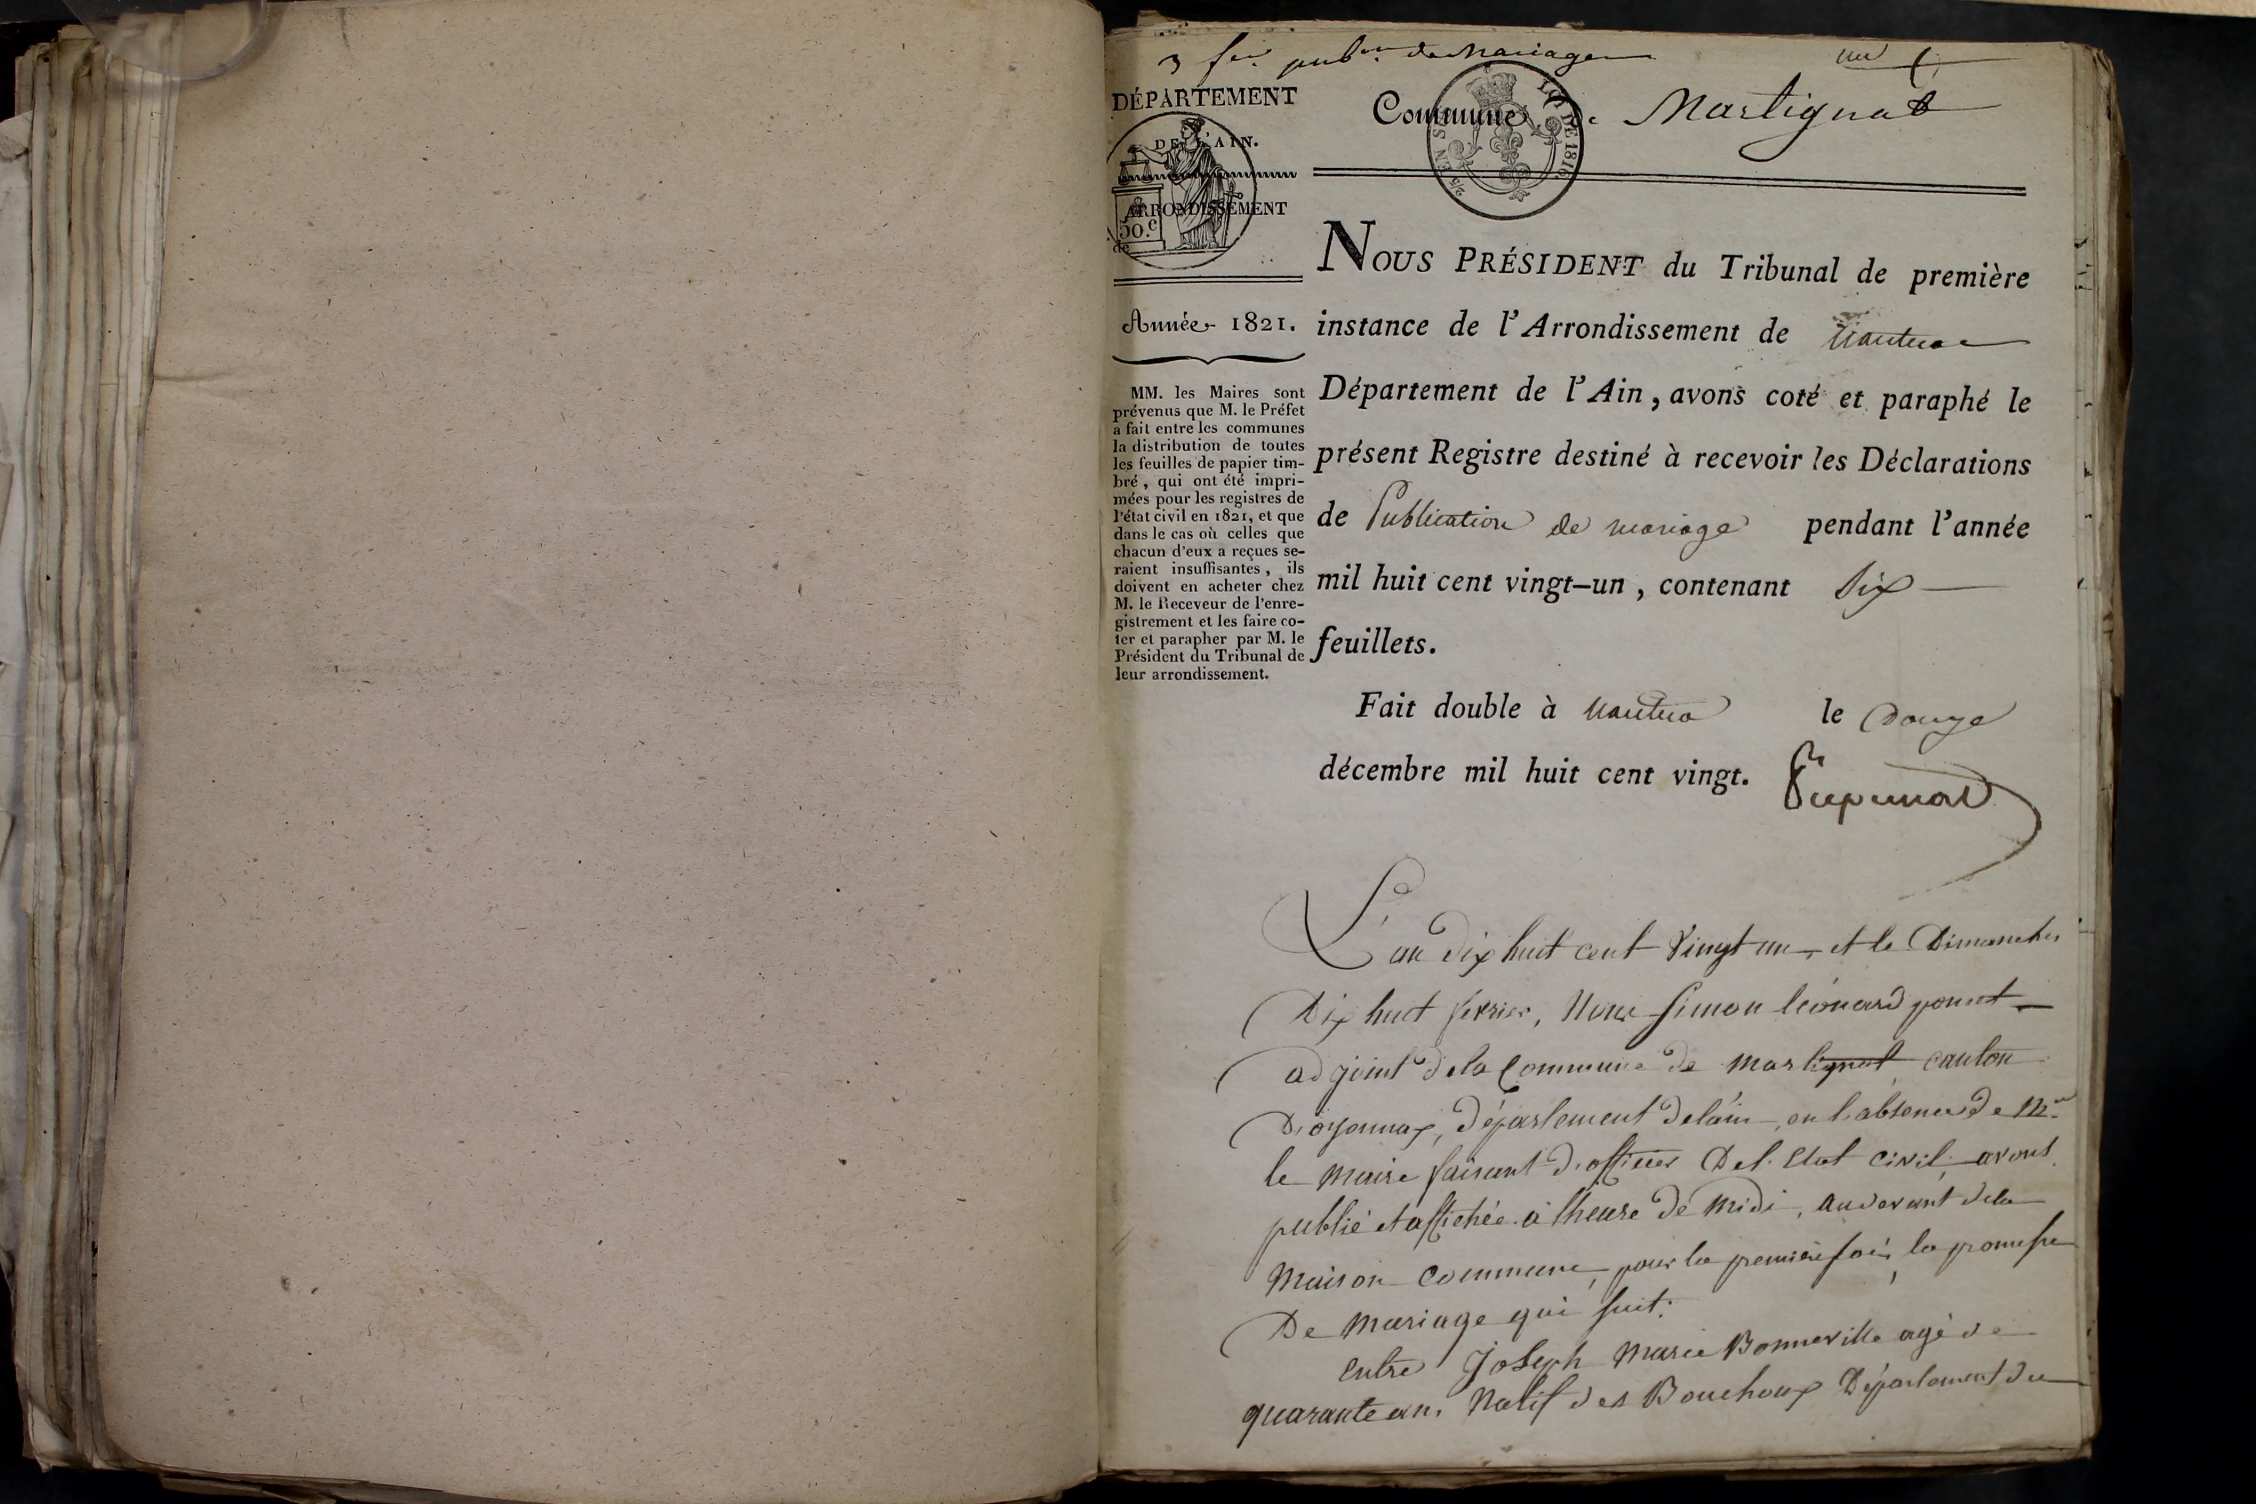 3 feu. pubon. de Mariage
un
DÉPARTEMENT
DE L'AIN.
ARRONDISSEMENT
de
50.c
Commune de Martignat
LOI DE 1816
Année 1821.
MM. les Maires sont
prévenus que M. le Préfet
a fait entre les communes
la distribution de toutes
les feuilles de papier tim-
bré, qui ont été impri-
mées pour les registres de
l'état civil en 1821, et que
dans le cas où celles que
chacun d'eux a reçues se-
raient insuffisantes, ils
doivent en acheter chez
M. le Receveur de l'enre-
gistrement et les faire co-
ter et parapher par M. le
Président du Tribunal de
leur arrondissement.
NOUS PRÉSIDENT du Tribunal de première
instance de l'Arrondissement de Nantua
Département de l'Ain, avons coté et paraphé le
présent Registre destiné à recevoir les Déclarations
de Publication de mariage pendant l'année
mil huit cent vingt-un, contenant Six
feuillets.
Fait double à Nantua le Douze
décembre mil huit cent vingt.
L'an dix huit cent vingt un, et le Dimanche
Dix huit février, Nous Simon léonard ponnet
adjoint dela Commune de Martignat canton
D'oyonnax, département delain, en l'absence de Mr
le Maire faisant d'officier Del'Etat civil, avons
publié et affichée à lheure de Midi, audevant dela
Maison Commune, pour la première fois, la promesse
De Mariage qui suit:
entre Joseph Marie Bonneville agé de
quarante ans Natif des Bouchoux Département du